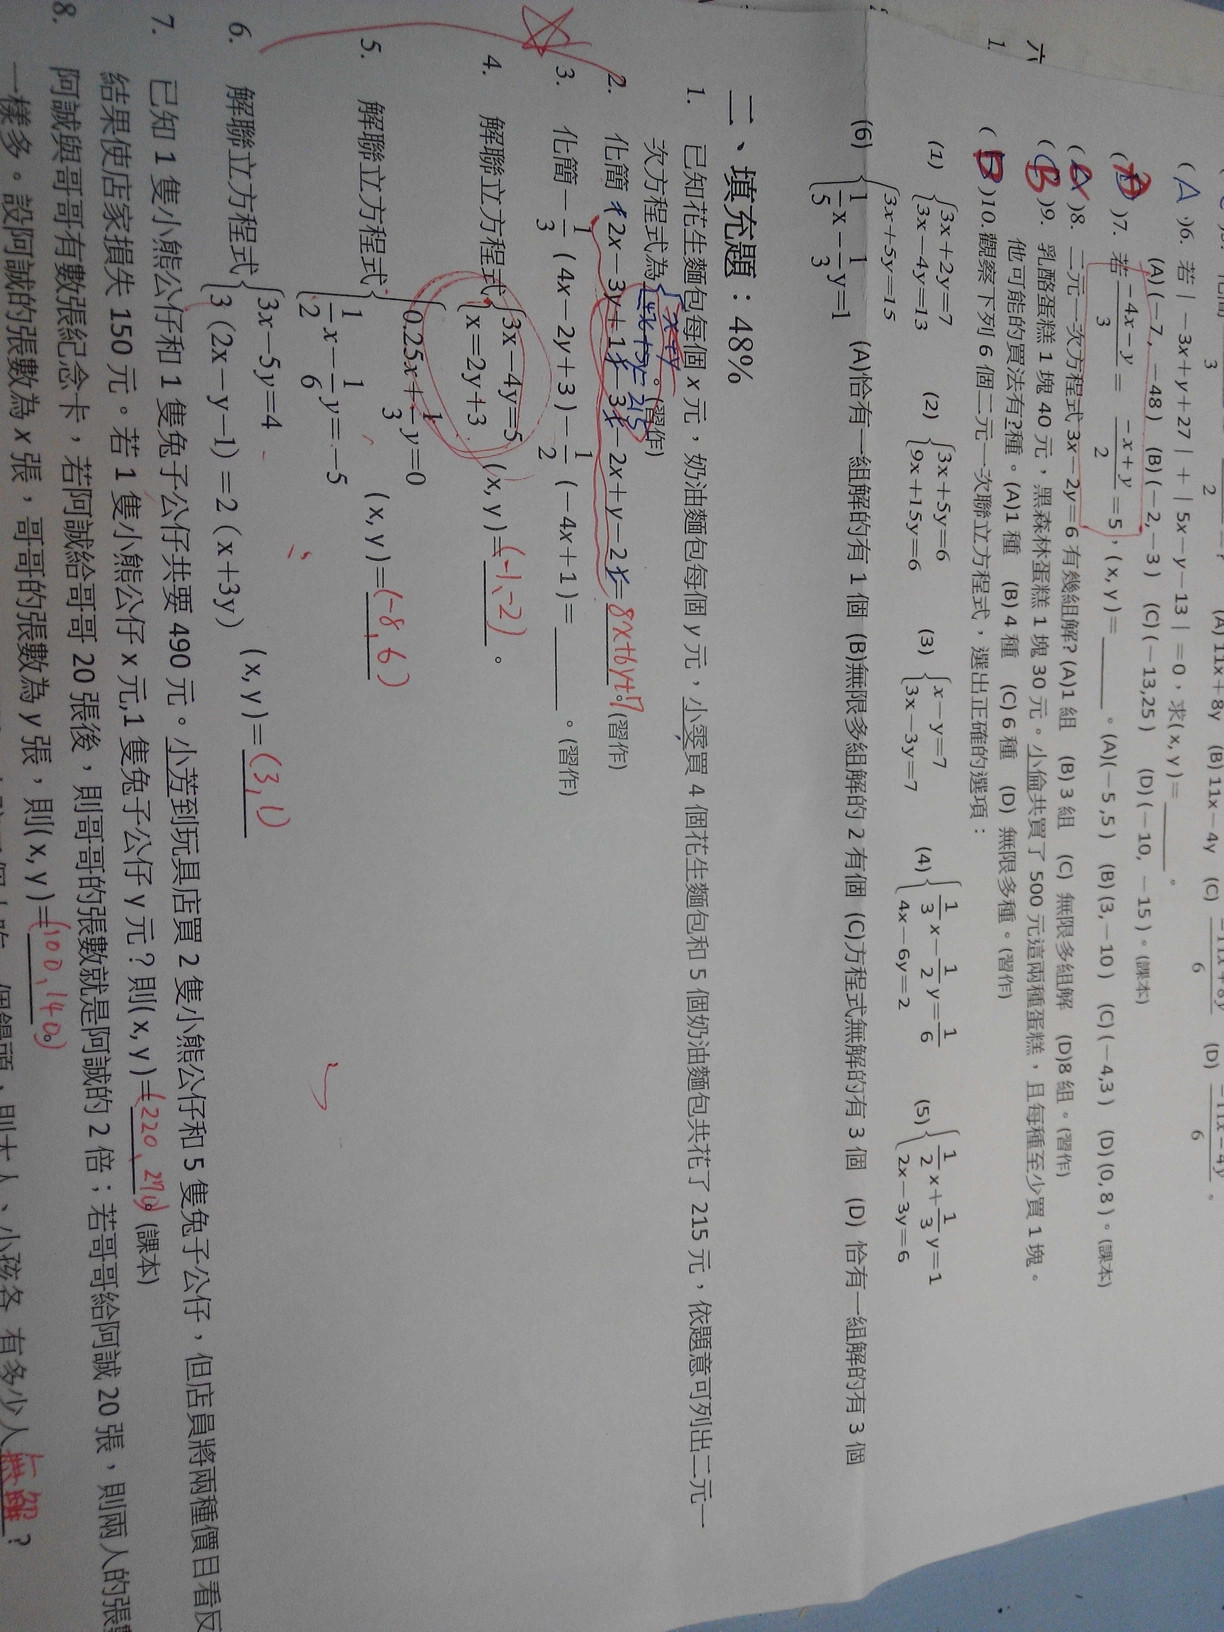 (A)11x+8y (B)11x−4y (C) −11x+8y/6 (D) −11x−4y/6 。
(A)6. 若|−3x+y+27|+|5x−y−13|=0,求(x,y)=______。
(A)(−7,−48) (B)(−2,−3) (C)(−13,25) (D)(−10,−15)。(課本)
( )7. 若 −4x−y/3 = −x+y/2 =5,(x,y)=______。(A)(−5,5) (B)(3,−10) (C)(−4,3) (D)(0,8)。(課本)
( )8. 二元一次方程式 3x−2y=6 有幾組解? (A)1 組 (B)3 組 (C) 無限多組解 (D)8 組。(習作)
(B)9. 乳酪蛋糕 1 塊 40 元,黑森林蛋糕 1 塊 30 元。小倫共買了 500 元這兩種蛋糕,且每種至少買 1 塊。
他可能的買法有?種。(A)1 種 (B) 4 種 (C) 6 種 (D) 無限多種。(習作)
( )10. 觀察下列 6 個二元一次聯立方程式,選出正確的選項:
(1) {3x+2y=7 3x−4y=13 (2) {3x+5y=6 9x+15y=6 (3) {x−y=7 3x−3y=7 (4) {1/3x−1/2y=1/6 4x−6y=2 (5) {1/2x+1/3y=1 2x−3y=6
(6) {3x+5y=15 1/5x−1/3y=1 (A)恰有一組解的有 1 個 (B)無限多組解的 2 有個 (C)方程式無解的有 3 個 (D) 恰有一組解的有 3 個
六
1.
二、填充題:48%
1. 已知花生麵包每個 x 元,奶油麵包每個 y 元,小雯買 4 個花生麵包和 5 個奶油麵包共花了 215 元,依題意可列出二元一
次方程式為 4x+5y=215。(習作)
2. 化簡 2x−3y+1 −3 −2x+y−2 = 8x+6y+7。(習作)
3. 化簡 −1/3(4x−2y+3)−1/2(−4x+1)=______。(習作)
4. 解聯立方程式 {3x−4y=5 x=2y+3 (x,y)=(-1,-2)。
5. 解聯立方程式 {0.25x+1/3y=0 1/2x−1/6y=−5 (x,y)=(-8,6)
6. 解聯立方程式 {3x−5y=4 3(2x−y−1)=2(x+3y) (x,y)=(3,1)
7. 已知 1 隻小熊公仔和 1 隻兔子公仔共要 490 元。小芳到玩具店買 2 隻小熊公仔和 5 隻兔子公仔,但店員將兩種價目看反
結果使店家損失 150 元。若 1 隻小熊公仔 x 元,1 隻兔子公仔 y 元?則(x,y)=(220,270)(課本)
8. 阿誠與哥哥有數張紀念卡,若阿誠給哥哥 20 張後,則哥哥的張數就是阿誠的 2 倍;若哥哥給阿誠 20 張,則兩人的張
一樣多。設阿誠的張數為 x 張,哥哥的張數為 y 張,則(x,y)=(100,140)
則大人、小孩各 有多少人 無解 ?